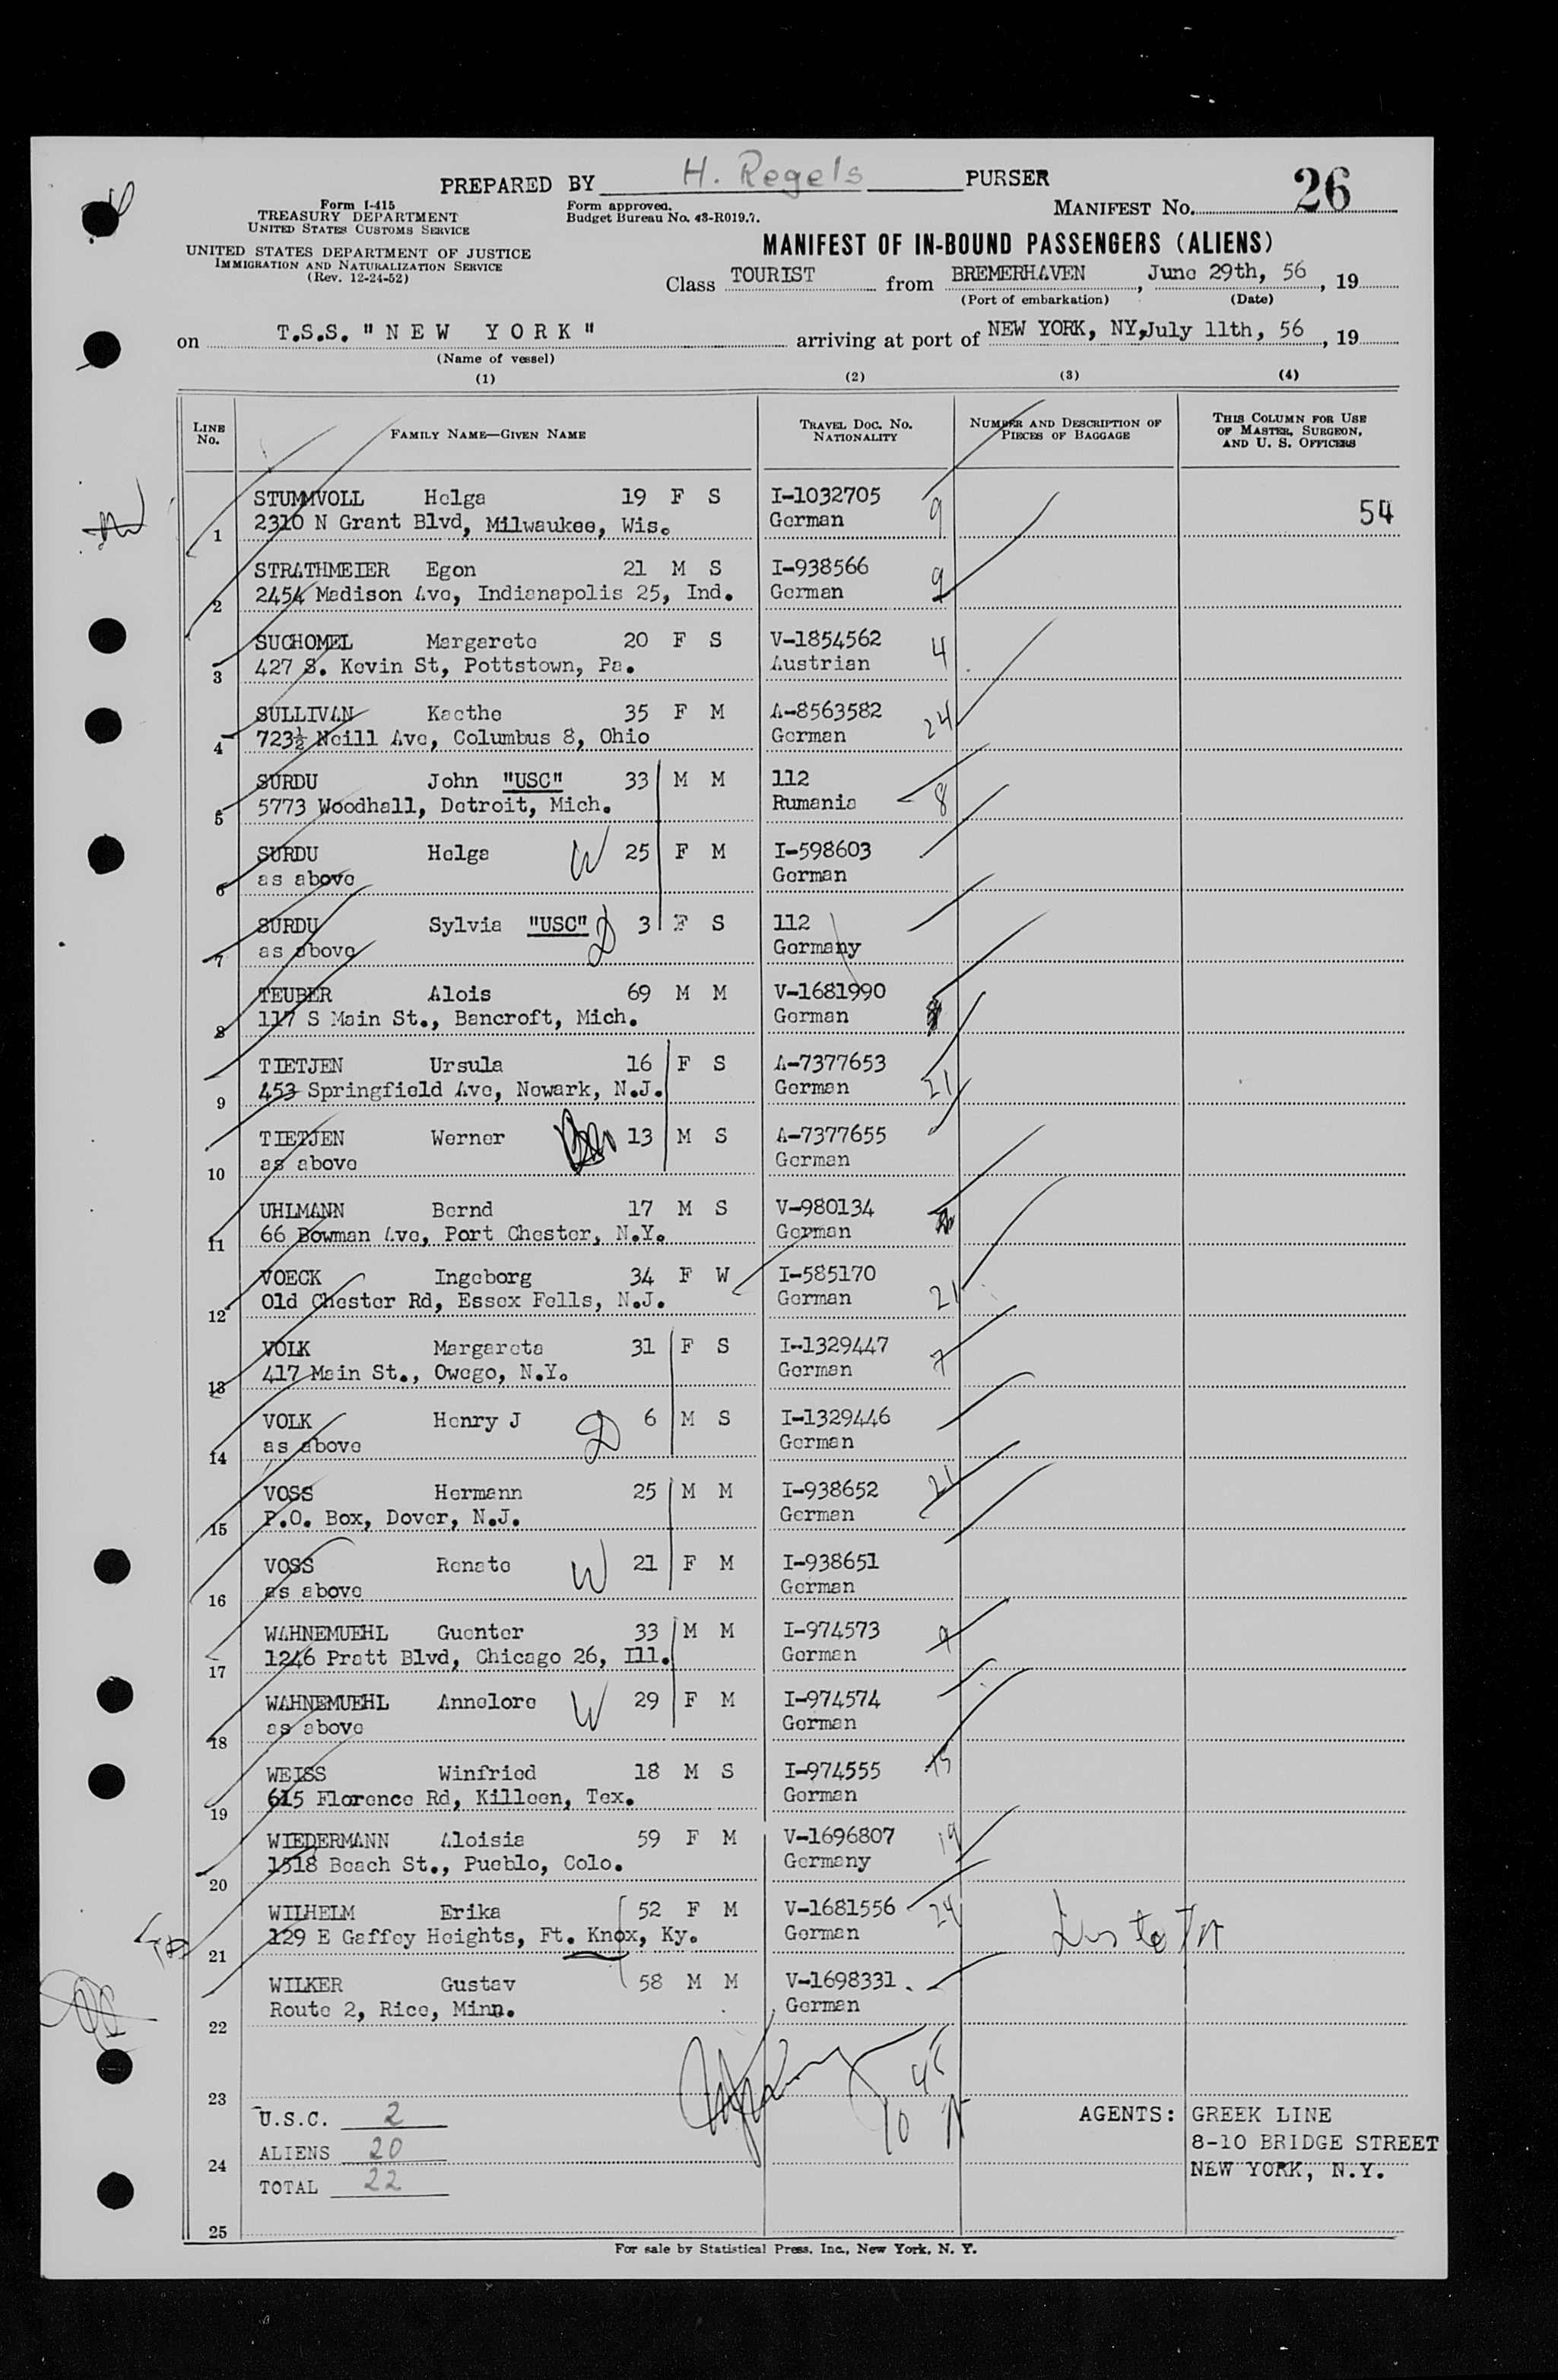 PREPARED BY H. Regels PURSER
Form I-415
TREASURY DEPARTMENT
UNITED STATES CUSTOMS SERVICE
UNITED STATES DEPARTMENT OF JUSTICE
IMMIGRATION AND NATURALIZATION SERVICE
(Rev. 12-24-52)
Form approved.
Budget Bureau No. 43-R019.7.
MANIFEST NO. 26
MANIFEST OF IN-BOUND PASSENGERS (ALIENS)
Class TOURIST from BREMERHAVEN, June 29th, 56, 19
(Port of embarkation) (Date)
on T.S.S. "NEW YORK" arriving at port of NEW YORK, NY, July 11th, 56, 19
(Name of vessel)
(1) (2) (3) (4)
LINE No. FAMILY NAME—GIVEN NAME TRAVEL DOC. NO. NATIONALITY NUMBER AND DESCRIPTION OF PIECES OF BAGGAGE THIS COLUMN FOR USE OF MASTER, SURGEON, AND U. S. OFFICERS
STUMMVOLL Helga 19 F S I-1032705 9 54
1 2310 N Grant Blvd, Milwaukee, Wis. German
STRATHMEIER Egon 21 M S I-938566 9
2 2454 Madison Ave, Indianapolis 25, Ind. German
SUCHOMEL Margarete 20 F S V-1854562 4
3 427 S. Kevin St, Pottstown, Pa. Austrian
SULLIVAN Kaethe 35 F M A-8563582 24
4 723½ Neill Ave, Columbus 8, Ohio German
SURDU John "USC" 33 M M 112 8
5 5773 Woodhall, Detroit, Mich. Rumania
SURDU Helga W 25 F M I-598603
6 as above German
SURDU Sylvia "USC" D 3 F S 112
7 as above Germany
TEUBER Alois 69 M M V-1681990
8 117 S Main St., Bancroft, Mich. German
TIETJEN Ursula 16 F S A-7377653 21
9 453 Springfield Ave, Newark, N.J. German
TIETJEN Werner 13 M S A-7377655
10 as above German
UHLMANN Bernd 17 M S V-980134
11 66 Bowman Ave, Port Chester, N.Y. German
VOECK Ingeborg 34 F W I-585170 21
12 Old Chester Rd, Essex Fells, N.J. German
VOLK Margareta 31 F S I-1329447 7
13 417 Main St., Owego, N.Y. German
VOLK Henry J D 6 M S I-1329446
14 as above German
VOSS Hermann 25 M M I-938652 21
15 P.O. Box, Dover, N.J. German
VOSS Renate W 21 F M I-938651
16 as above German
WAHNEMUEHL Guenter 33 M M I-974573 9
17 1246 Pratt Blvd, Chicago 26, Ill. German
WAHNEMUEHL Annelore W 29 F M I-974574
18 as above German
WEISS Winfried 18 M S I-974555
19 615 Florence Rd, Killeen, Tex. German
WIEDERMANN Aloisia 59 F M V-1696807 19
20 1518 Beach St., Pueblo, Colo. Germany
WILHELM Erika 52 F M V-1681556 24
21 129 E Gaffey Heights, Ft. Knox, Ky. German
WILKER Gustav 58 M M V-1698331
22 Route 2, Rice, Minn. German
23
U.S.C. 2
24 ALIENS 20
TOTAL 22
25
AGENTS: GREEK LINE
8-10 BRIDGE STREET
NEW YORK, N.Y.
For sale by Statistical Press, Inc., New York, N. Y.